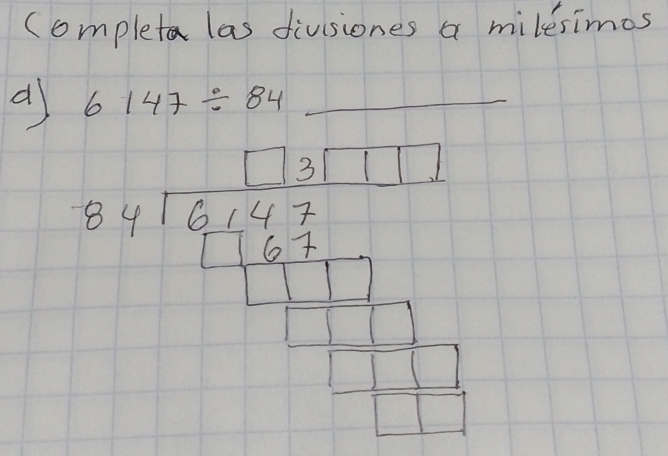 Completa las divisiones a milésimos
a) 6147 ÷ 84
3
84 6147
67